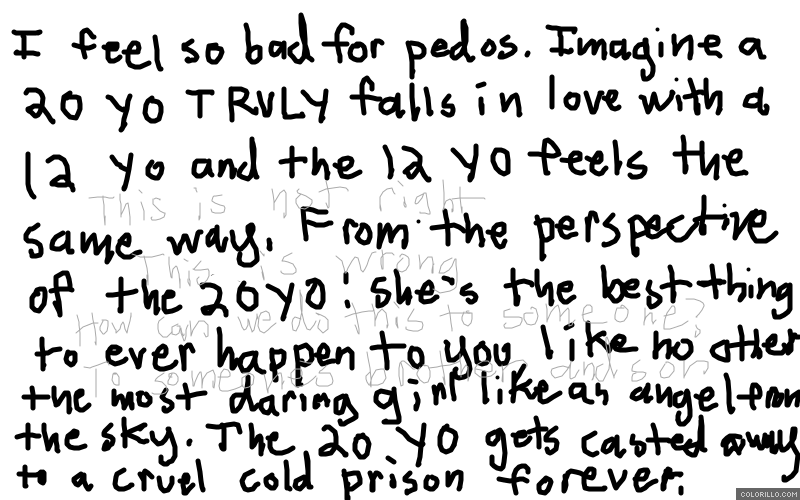 I feel so bad for pedos. Imagine a
20 yo TRULY falls in love with a
12 yo and the 12 yo feels the
This is not right
same way. From the perspective
This is wrong
of the 20 yo: she's the best thing
How can we do this to someone?
to ever happen to you like no other
To someones brother and son
the most daring girl like an angel from
the sky. The 20 yo gets casted away
to a cruel cold prison forever.
COLORILLO.COM